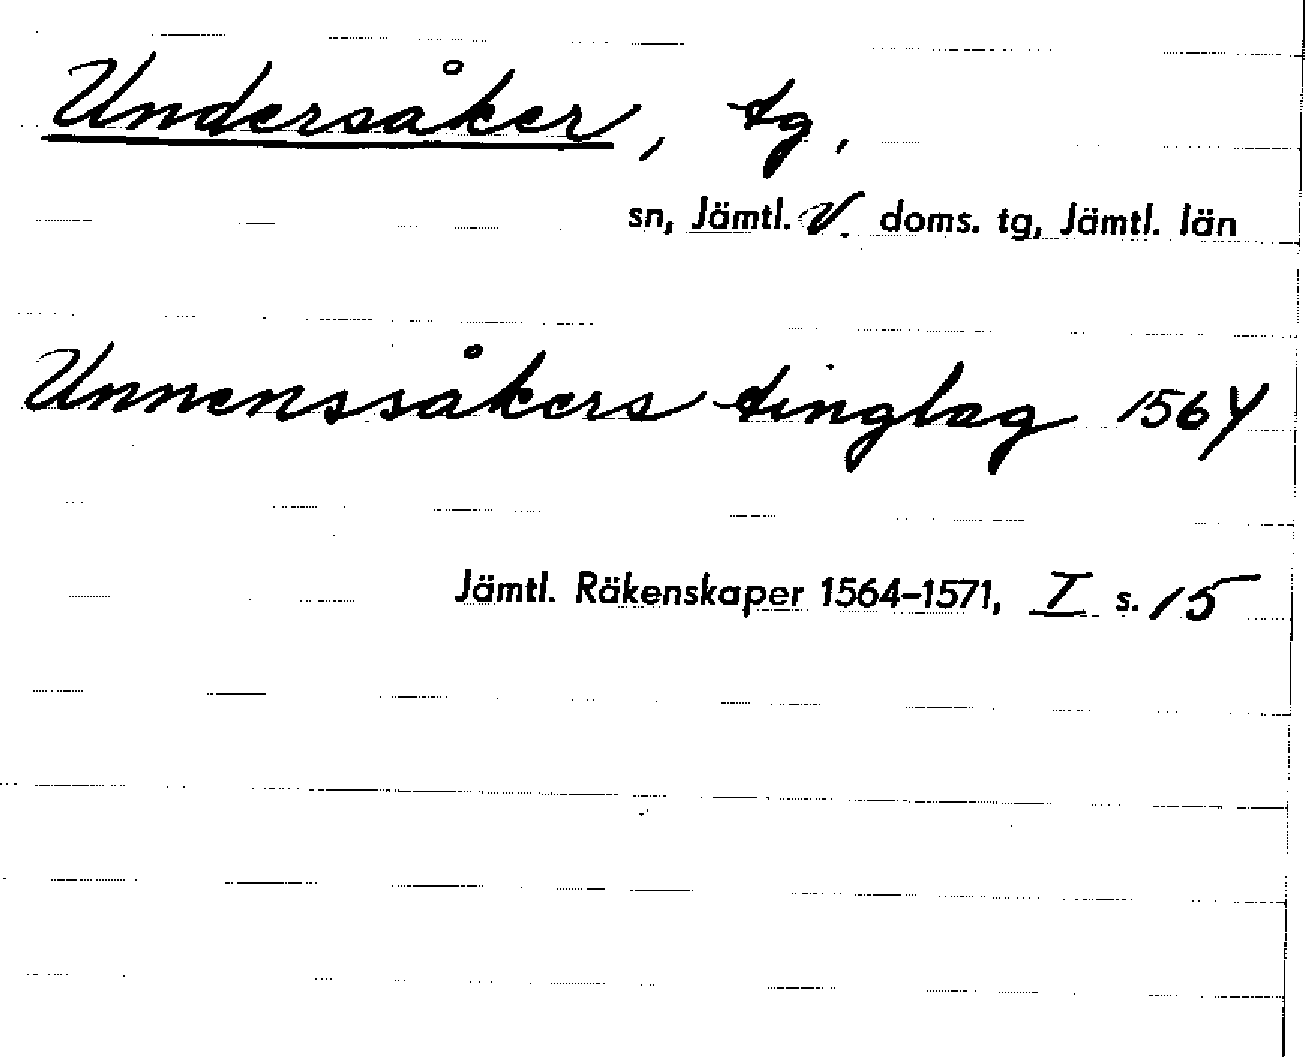 Undersåker, tg,
sn, Jämtl. V. doms. tg, Jämtl. län
Unnenssåkers tinglag 1564
Jämtl. Räkenskaper 1564–1571, I s. 15